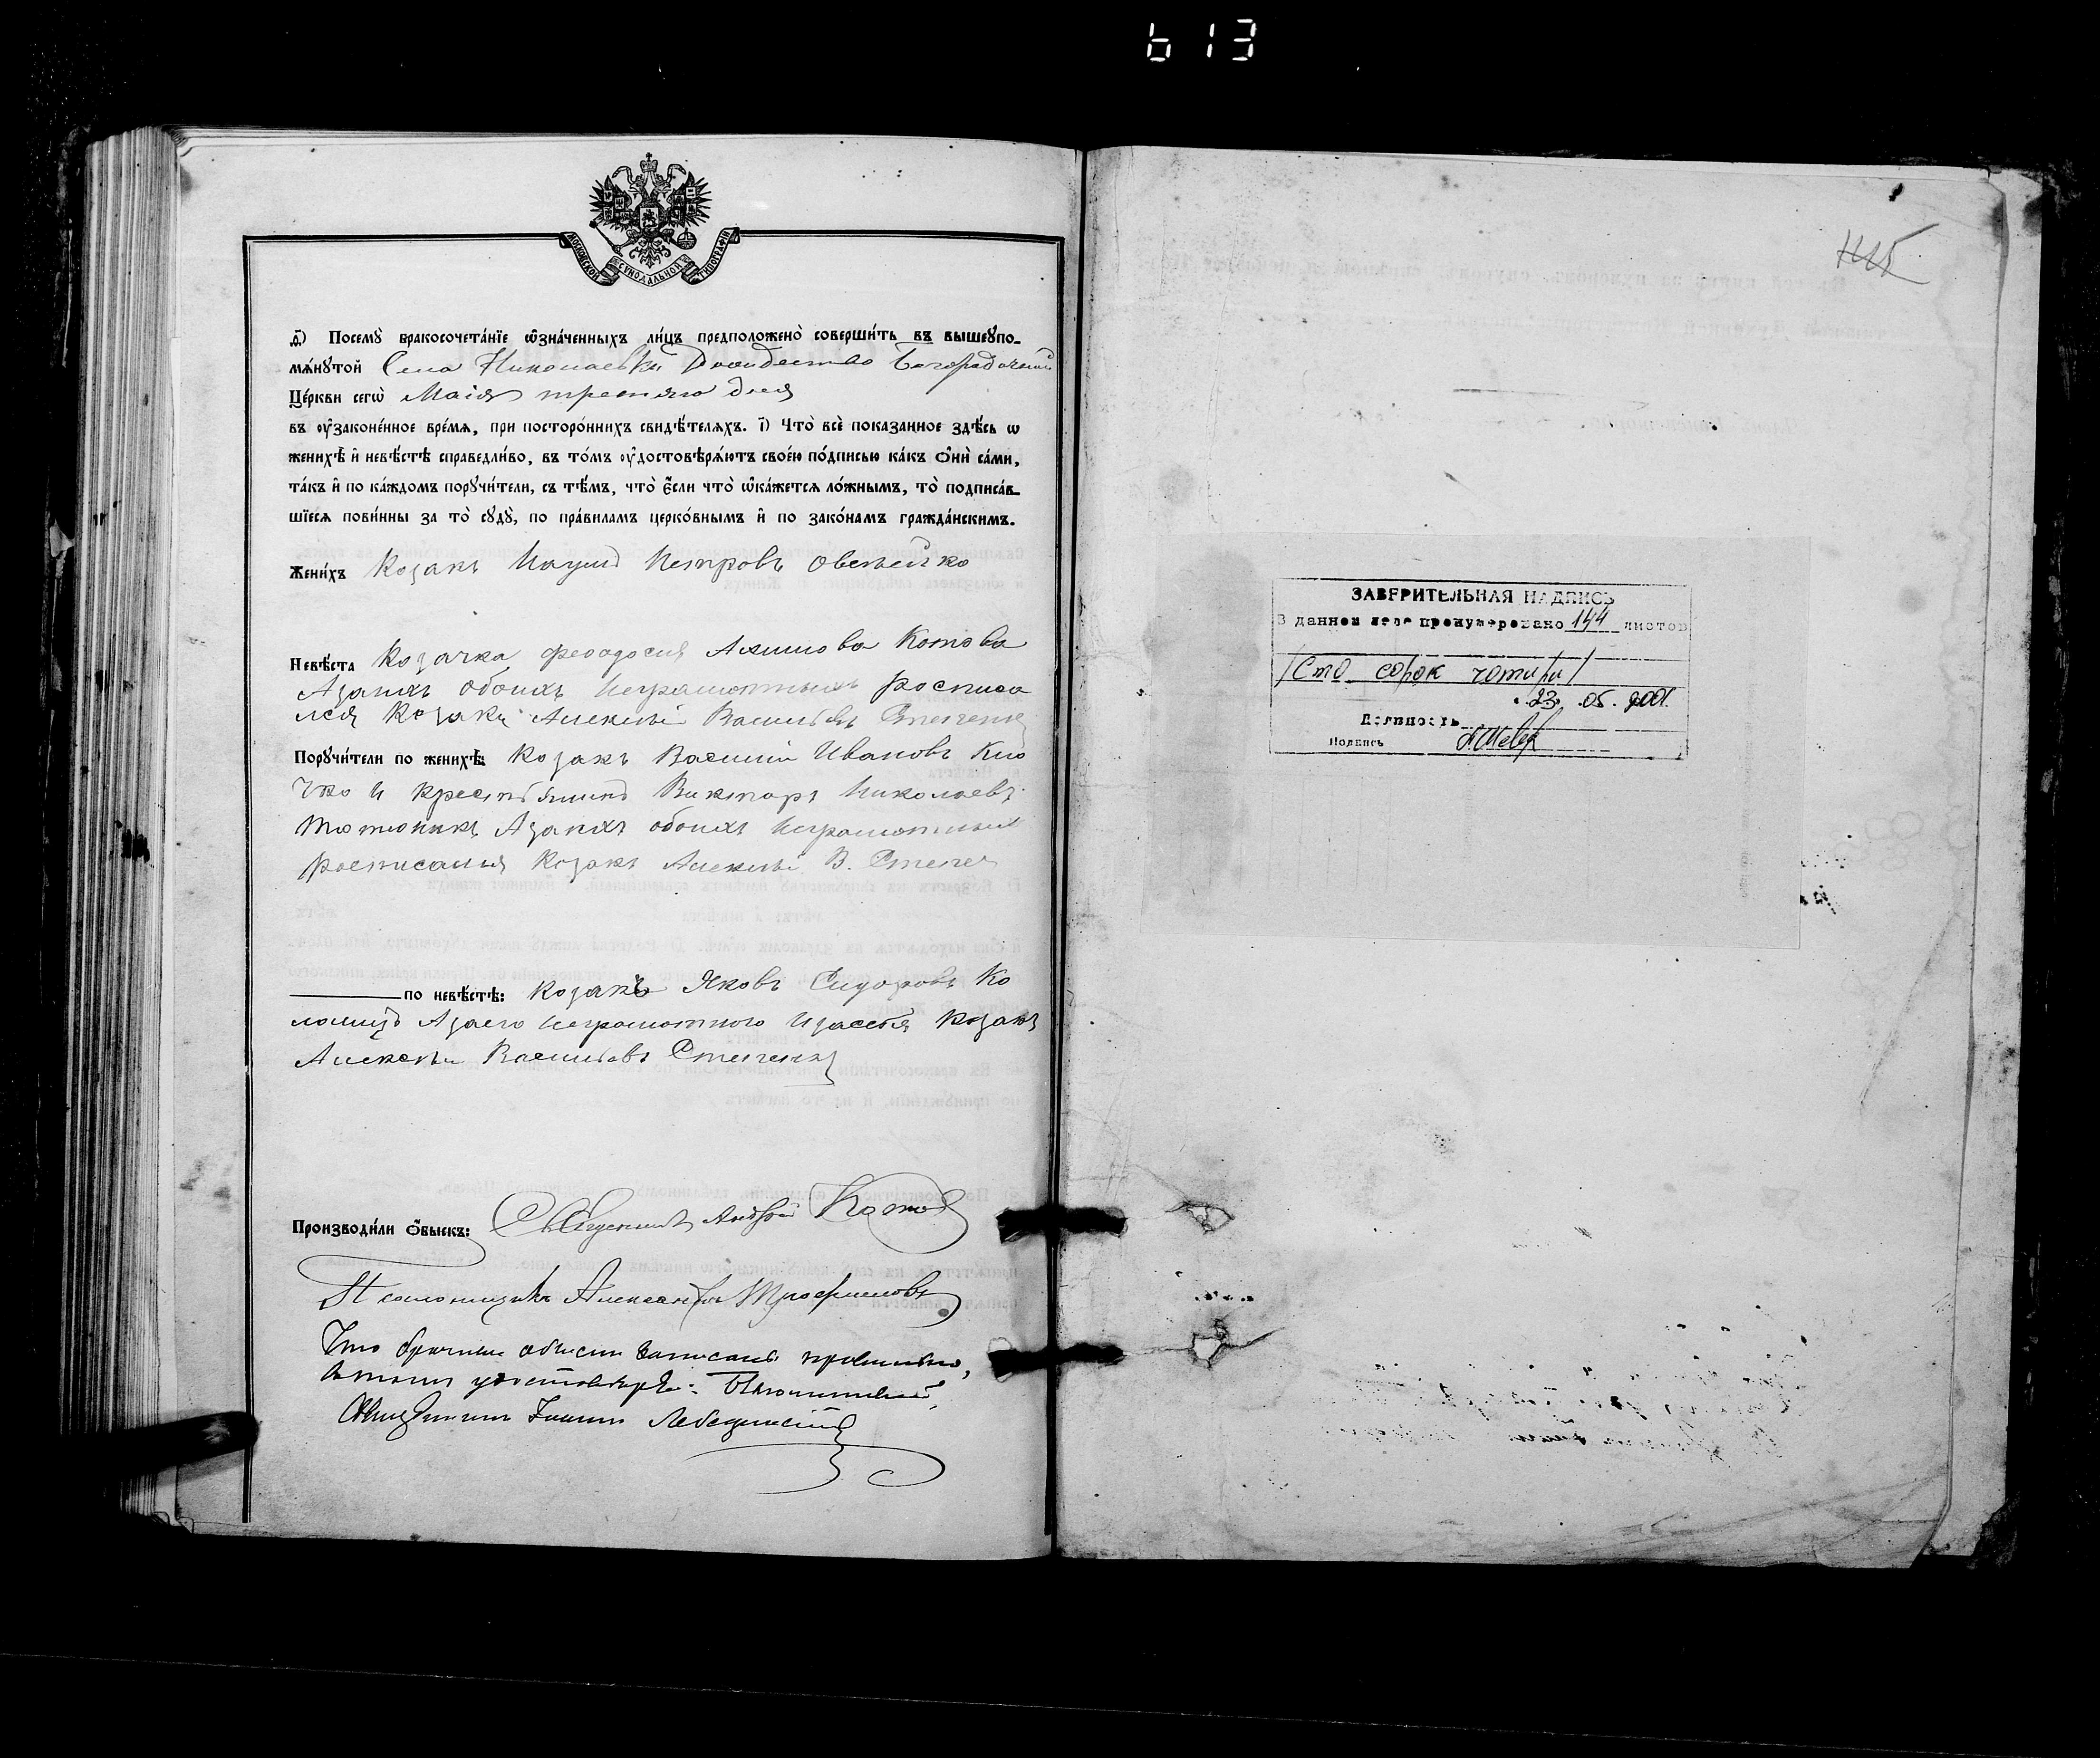 613
МОСКОВСКОЙ СѴНОДАЛЬНОЙ ТИПОГРАФІИ
д҃) Посемꙋ̀ бракосочета́нїе ѡ҆зна́ченныхъ ли́цъ предположено̀ соверши́ть въ вышеꙋпо-
мѧ́нꙋтой Села Николаевки Рождество Богородичной
Це́ркви сегѡ̀ Маія третьяго дня
въ ᲂу҆законе́нное вре́мѧ, при посторо́ннихъ свидѣ́телѧхъ. і҃) Что̀ всѐ показанное здѣ́сь ѡ
женихѣ̀ и҆ невѣ́стѣ справедли́во, въ то́мъ ᲂу҆достовѣрѧ́ютъ свое́ю по́дписью ка́къ Ѻ҆нѝ са́ми,
та́къ и҆ по ка́ждомъ порꙋчи́тели, съ тѣ́мъ, что̀ є҆́сли что̀ ѡ҆ка́жетсѧ ло́жнымъ, то̀ подписа́в-
шїесѧ пови́нны за то̀ сꙋдꙋ̀, по пра́виламъ церко́внымъ и҆ по зако́намъ гражда́нскимъ.
Жени́хъ Козакъ Наумъ Петровъ Овсѣйко
Невѣ́ста Козачка Феодосия Акимова Котова
Азаихъ обоихъ неграмотныхъ росписа
лся Козакъ Алексѣй Васильевъ
Порꙋчи́тели по женихѣ̀: Козакъ Василий Ивановъ Кло
чко и крестьянинъ Викторъ Николаевъ
Тютюникъ Азаихъ обоихъ неграмотныхъ
росписался Козакъ Алексѣй В.
по невѣ́стѣ: Козакъ Яковъ Сидоровъ Ко
ломіецъ Азаего неграмотного Козакъ
Алексѣй Васильевъ
Производи́ли ѻ҆́быскъ: Священникъ Андрей Котовъ
Псаломщикъ Александръ Трофимовъ
Что брачные обыски записаны правильно,
въ томъ удостовѣряю: Благочинный,
Священникъ Іоаннъ Лебединскій
145
ЗАВЕРИТЕЛЬНАЯ НАДПИСЬ
В данном деле пронумеровано 144 листов
/Сто сорок чотири/
23. 05. 2001.
Должность
Подпись